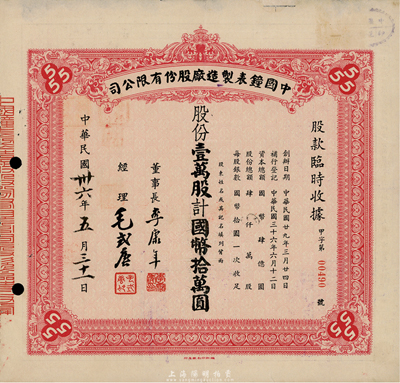 中國鐘表製造廠股份有限公司
股款臨時收據
甲字第 00490 號
創辦日期 中華民國廿九年三月廿四日
補行登記 中華民國三十六年六月十二日
資本總額 國幣肆億圓
股份總額 肆仟萬股
每股銀數 國幣拾圓一次收足
股東姓名或其記名填列背面
股份壹萬股計國幣拾萬圓
董事長
經理
中華民國卅六年五月三十一日
55
55
55
55